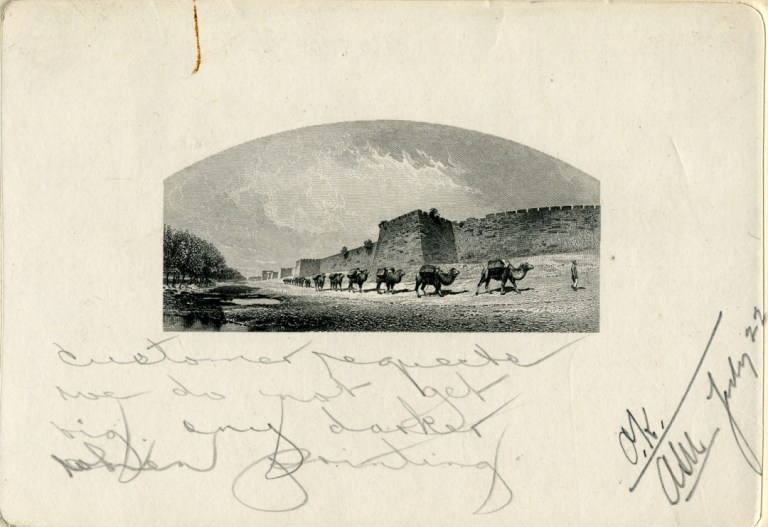 customer requests
we do not get
vig. any darker
when printing
O.K.
July 22